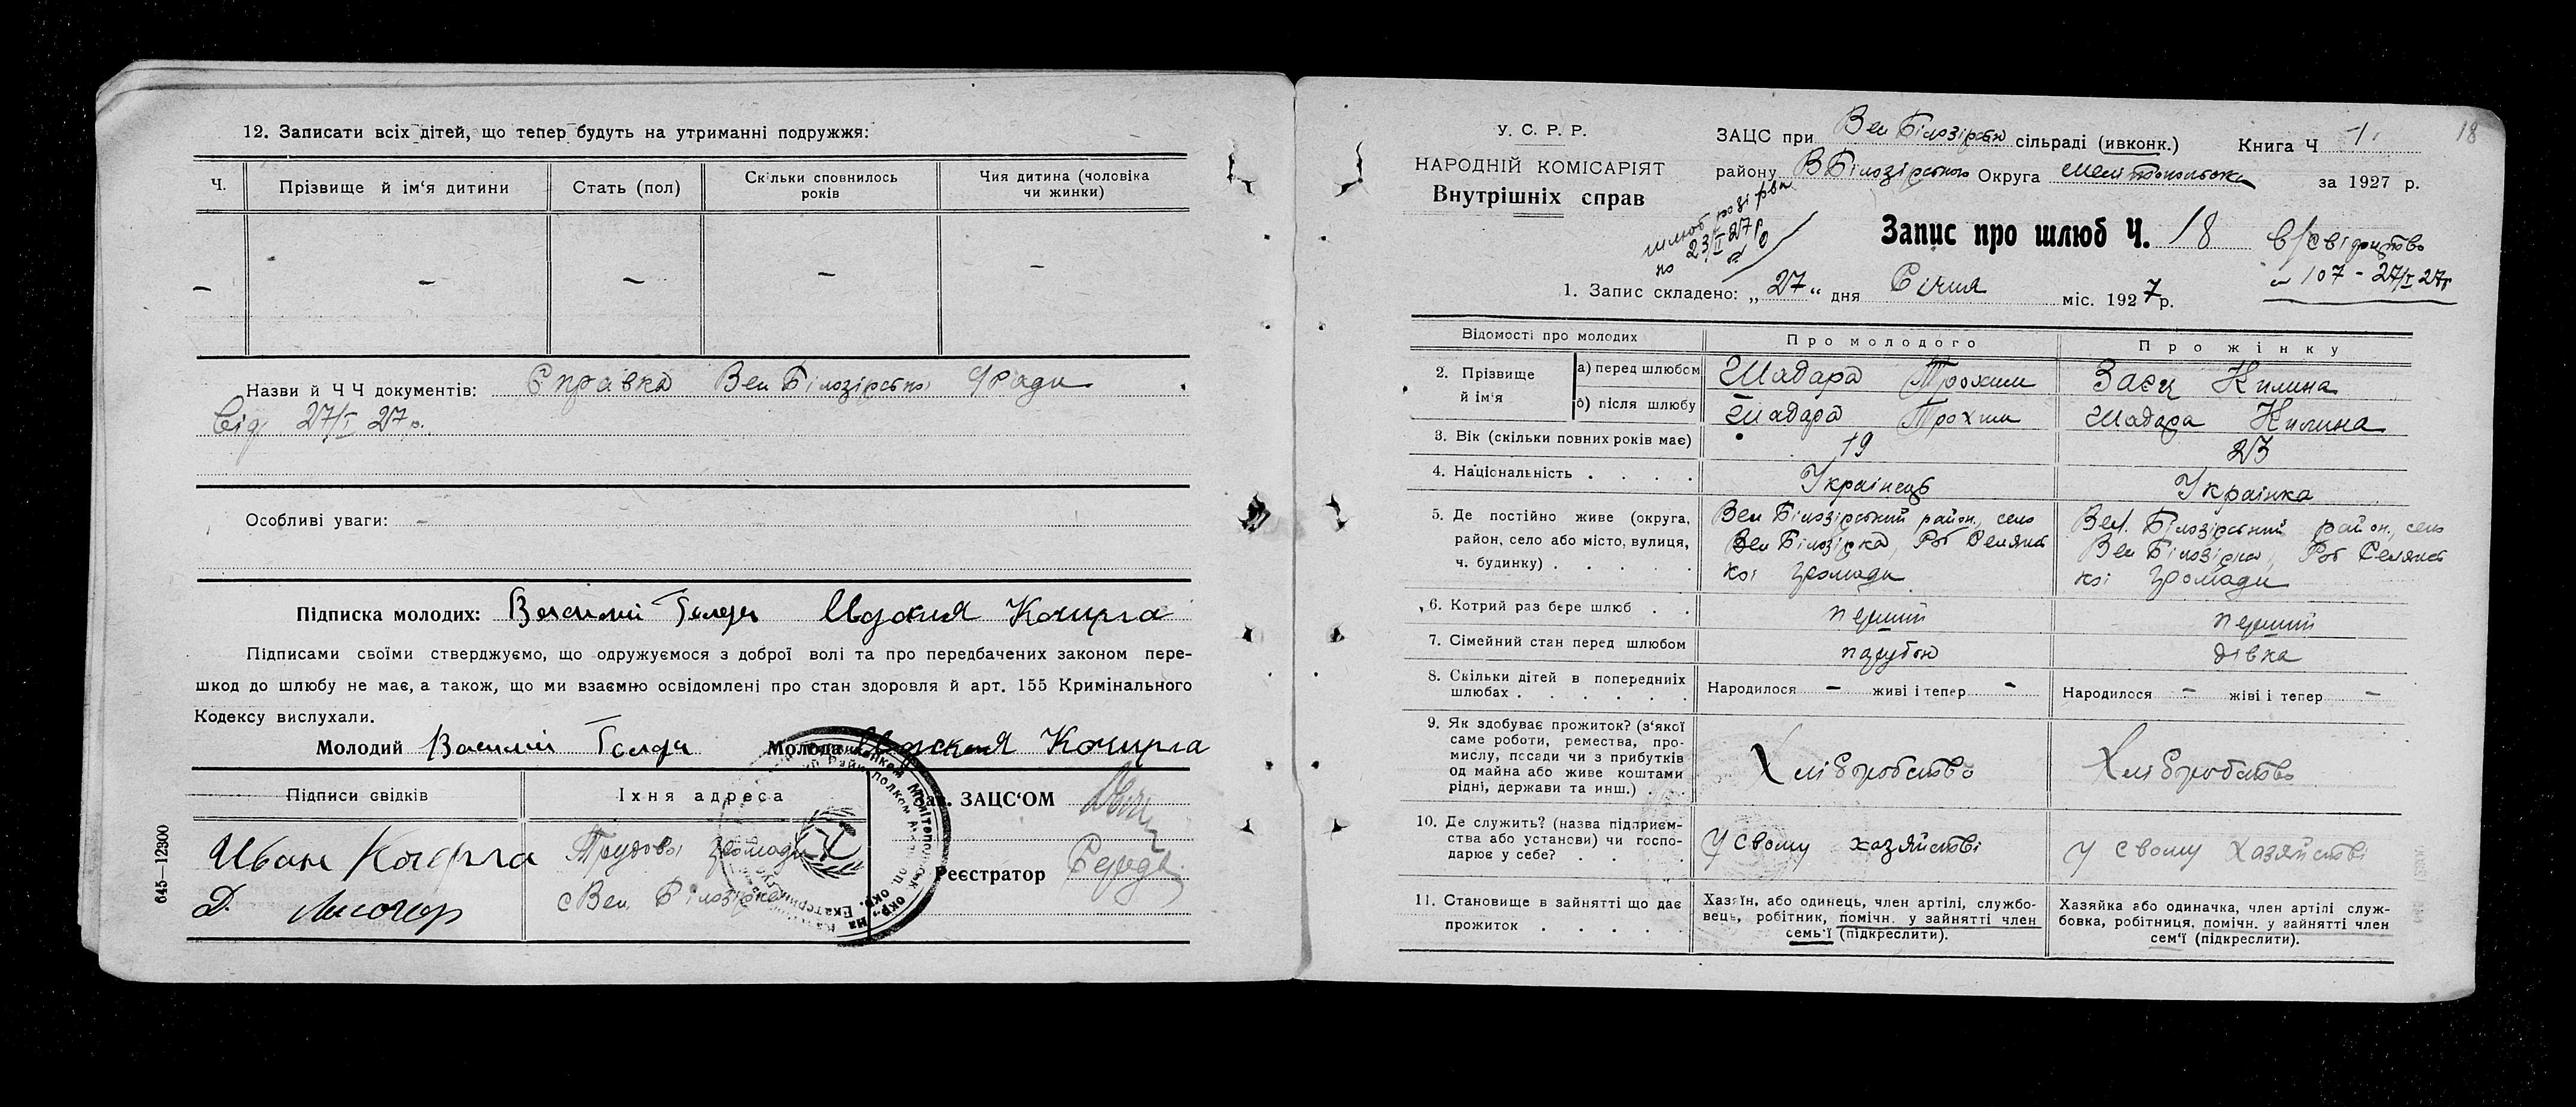 12. Записати всіх дітей, що тепер будуть на утриманні подружжя:
Ч. Прізвище й ім‘я дитини Стать (пол) Скільки сповнилось років Чия дитина (чоловіка чи жинки)
– – – – –
Назви й Ч Ч документів: Справка Вел Білозірської Ч Ради
Від 27/I 27 р.
Особливі уваги: –
Підписка молодих: Василий Кочирга
Підписами своїми стверджуємо, що одружуємося з доброї волі та про передбачених законом пере-
шкод до шлюбу не має, а також, що ми взаємно освідомлені про стан здоровля й арт. 155 Кримінального
Кодексу вислухали.
Молодий Василий Молода Кочирга
Підписи свідків Їхня адреса Зав. ЗАЦС‘ОМ
Иван Трудової громади
Д. Лисогор с Вел. Білозірка Реєстратор Середа
645—12300
18
У. С. Р. Р.
НАРОДНІЙ КОМІСАРІЯТ
Внутрішніх справ
ЗАЦС при Вел Білозірськ сільраді (ивконк.) Книга Ч 1
району В Білозірського Округа Мелітопольська за 1927 р.
шлюб розірва
но 23/II 27 р
Запис про шлюб Ч. 18
в/свідоцтво
№ 107 - 27/I 27р
1. Запис складено: „27“ дня Січня міс. 1927 р.
Відомості про молодих Про молодого Про жінку
2. Прізвище й ім‘я а) перед шлюбом Шадара Трохим Заєць Килина
б) після шлюбу Шадара Трохим Шадара Килина
3. Вік (скільки повних років має) 19 23
4. Національність . . . . Українець Українка
5. Де постійно живе (округа, Вел Білозірський район, село Вел. Білозірський район, село
район, село або місто, вулиця, Вел Білозірка, Роб Селянсь Вел Білозірка, Роб Селянсь
ч. будинку) . . . . . кої громади кої громади
6. Котрий раз бере шлюб . . перший перший
7. Сімейний стан перед шлюбом парубок дівка
8. Скільки дітей в попередниіх
шлюбах . . . . . . Народилося – живі і тепер – Народилося – жіві і тепер –
9. Як здобуває прожиток? (з‘якої
саме роботи, ремества, про-
мислу, посади чи з прибутків
од майна або живе коштами
рідні, держави та инш.) . . Хліборобство Хліборобство
10. Де служить? (назва підприєм-
ства або установи) чи госпо-
дарює у себе? . . у свому хазяйстві у свому хазяйстві
11. Становище в зайнятті що дає
прожиток . . . . .
Хазяїн, або одинець, член артілі, службо-
вець, робітник, помічн. у зайнятті член
семь‘ї (підкреслити).
Хазяйка або одиначка, член артілі служ-
бовка, робітниця, помічн. у зайнятті член
сем‘ї (підкреслити).